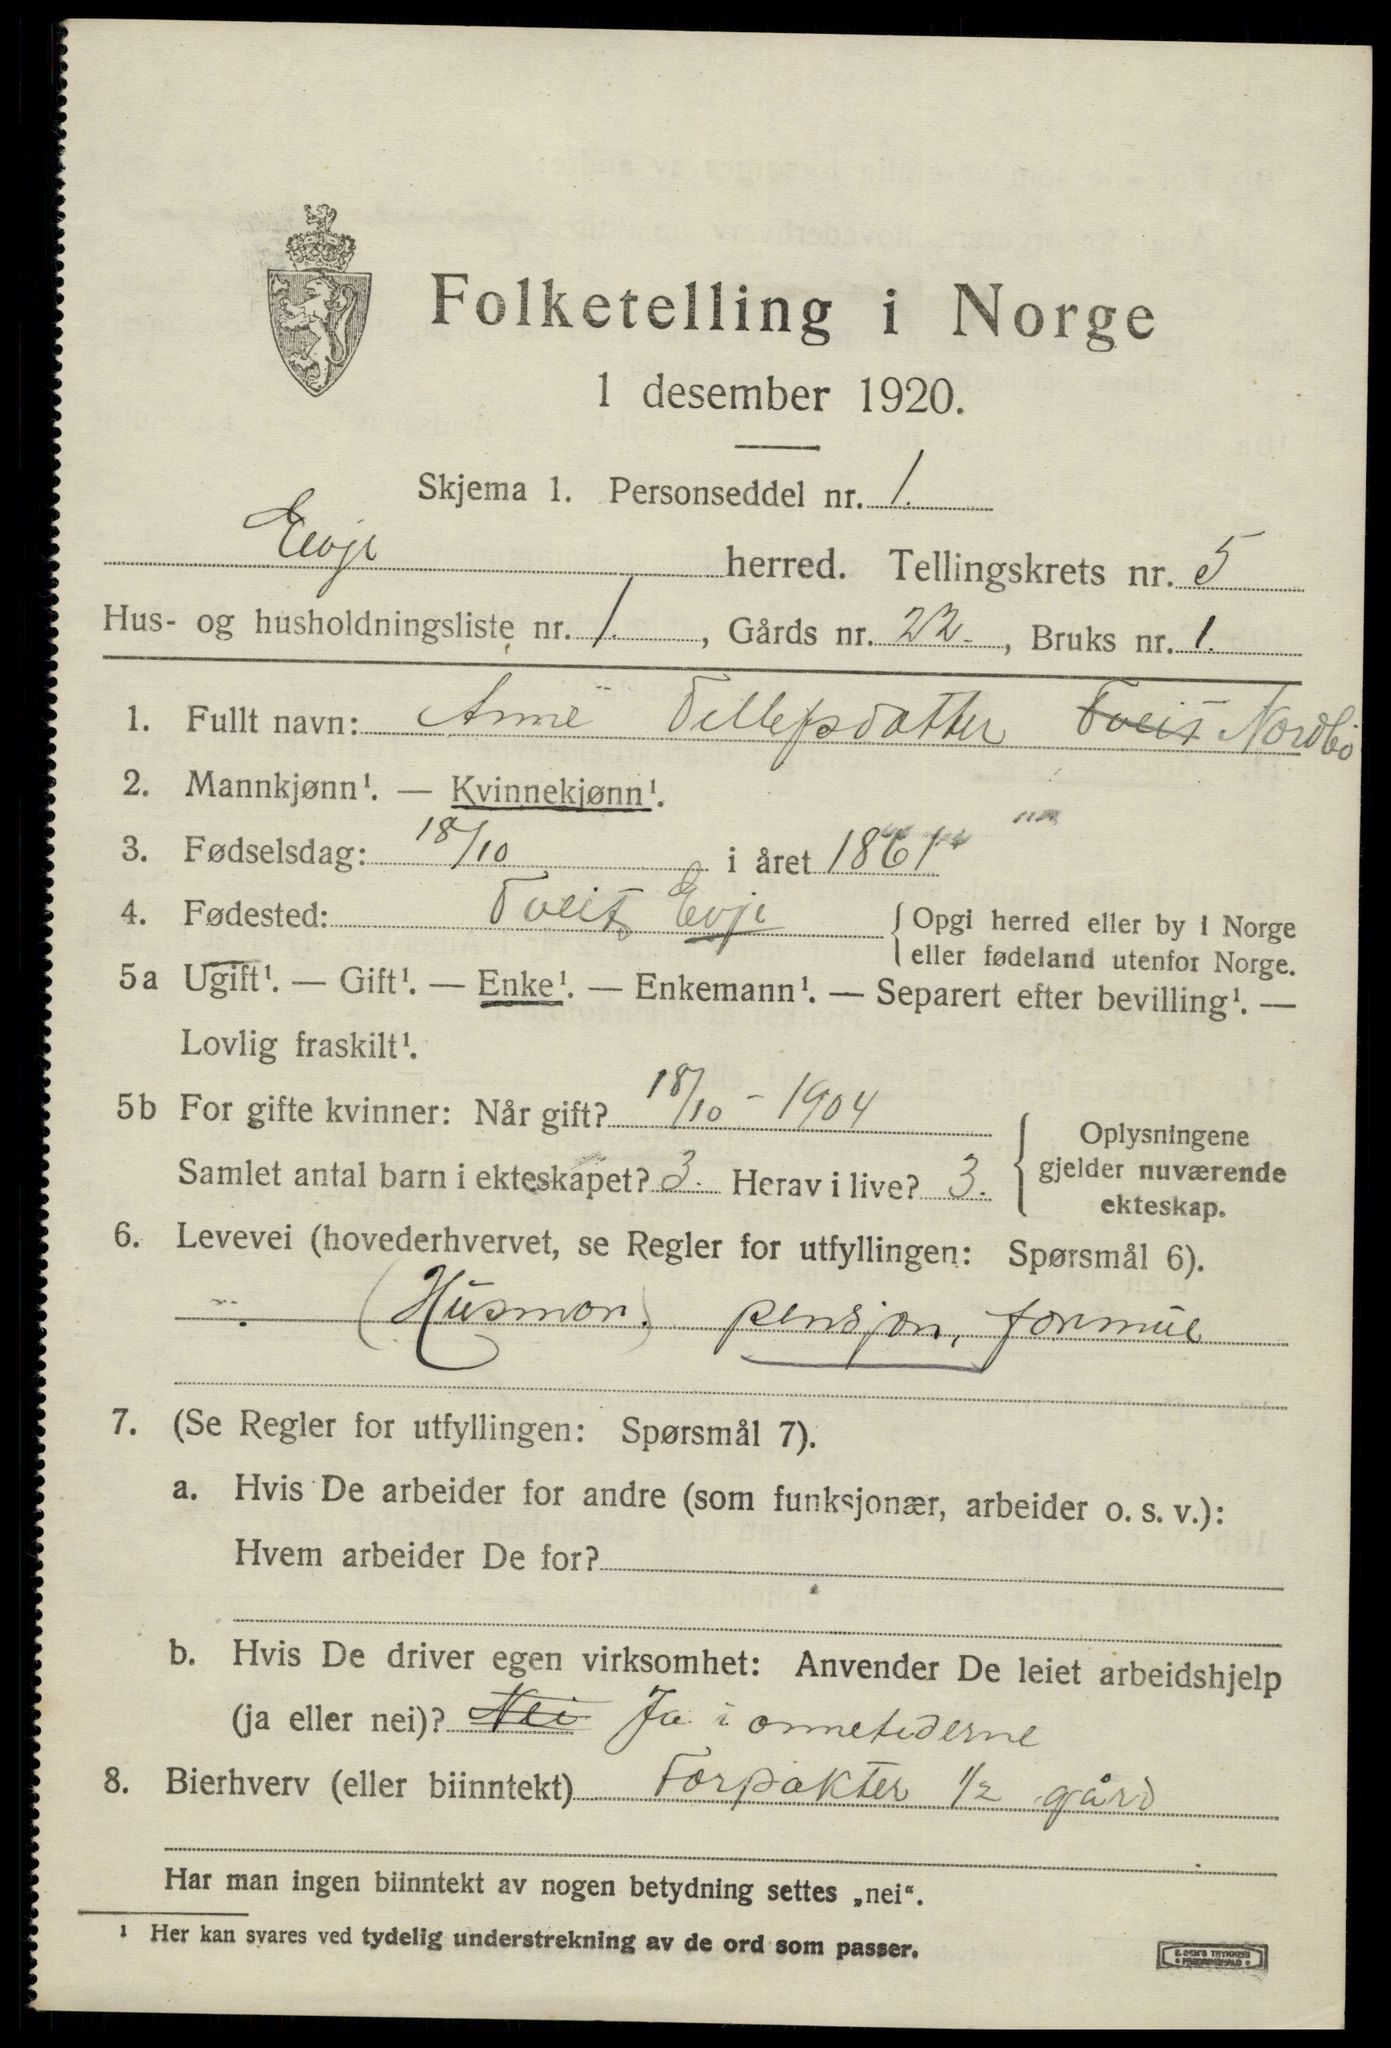 Folketelling i Norge
1 desember 1920.
Skjema 1. Personseddel nr. 1.
Evje herred. Tellingskrets nr. 5
Hus- og husholdningsliste nr. 1., Gårds nr. 22., Bruks nr. 1.
1. Fullt navn: Anne Tellefsdatter Tveit Nordbö
2. Mannkjønn¹. — Kvinnekjønn¹.
3. Fødselsdag: 18/10 i året 1861
4. Fødested: Tveit, Evje { Opgi herred eller by i Norge
eller fødeland utenfor Norge.
5a Ugift¹. — Gift¹. — Enke¹. — Enkemann¹. — Separert efter bevilling¹. —
Lovlig fraskilt¹.
5b For gifte kvinner: Når gift? 18/10 - 1904
Samlet antal barn i ekteskapet? 3. Herav i live? 3.
{ Oplysningene
gjelder nuværende
ekteskap.
6. Levevei (hovederhvervet, se Regler for utfyllingen: Spørsmål 6).
(Husmor.) pensjon, formue
7. (Se Regler for utfyllingen: Spørsmål 7).
a. Hvis De arbeider for andre (som funksjonær, arbeider o. s. v.):
Hvem arbeider De for?
b. Hvis De driver egen virksomhet: Anvender De leiet arbeidshjelp
(ja eller nei)? Nei Ja i onnetiderne
8. Bierhverv (eller biinntekt) Forpakter 1/2 gård
Har man ingen biinntekt av nogen betydning settes „nei“.
¹ Her kan svares ved tydelig understrekning av de ord som passer.